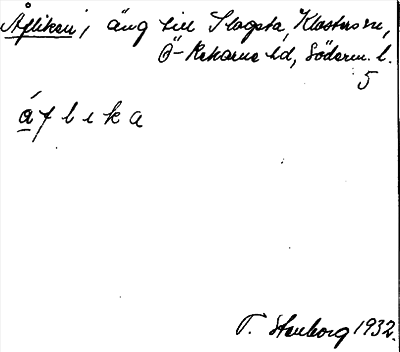 Åfliken, äng till Slagsta, Klosters sn,
Ö-Rekarne hd, Söderm. l.
5
áflika
T. Stenborg 1932.